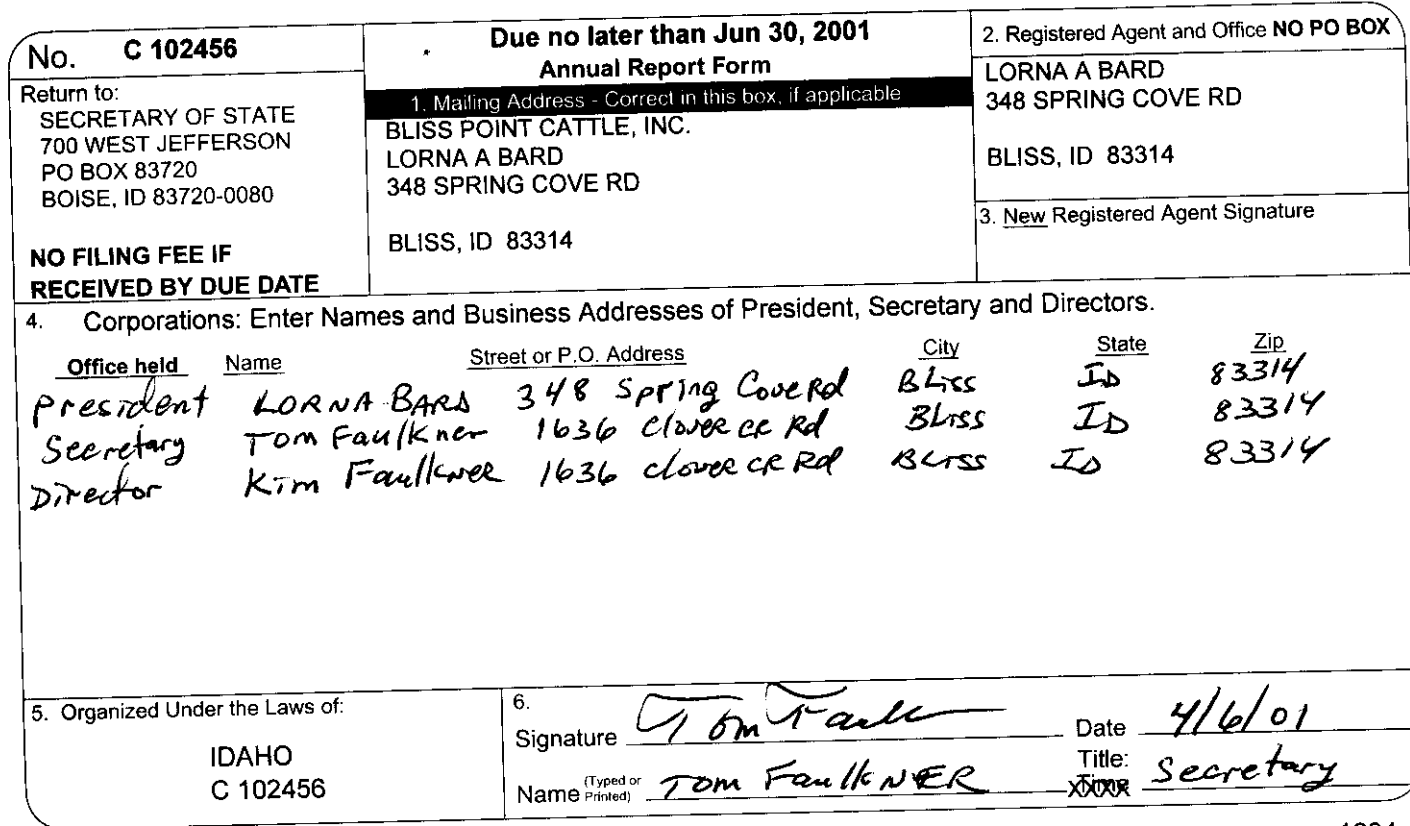 No. C 102456
Return to:
SECRETARY OF STATE
700 WEST JEFFERSON
PO BOX 83720
BOISE, ID 83720-0080
NO FILING FEE IF
RECEIVED BY DUE DATE
Due no later than Jun 30, 2001
Annual Report Form
1. Mailing Address - Correct in this box, if applicable
BLISS POINT CATTLE, INC.
LORNA A BARD
348 SPRING COVE RD
BLISS, ID 83314
2. Registered Agent and Office NO PO BOX
LORNA A BARD
348 SPRING COVE RD
BLISS, ID 83314
3. New Registered Agent Signature
4. Corporations: Enter Names and Business Addresses of President, Secretary and Directors.
Office held Name Street or P.O. Address City State Zip
President LORNA BARD 348 Spring Cove Rd Bliss ID 83314
Secretary Tom Faulkner 1636 Clover CR Rd Bliss ID 83314
Director Kim Faulkner 1636 clover CR Rd Bliss ID 83314
5. Organized Under the Laws of:
IDAHO
C 102456
6.
Signature Tom Faulk Date 4/6/01
Name (Typed or Printed) Tom FaulkNER Title: Secretary